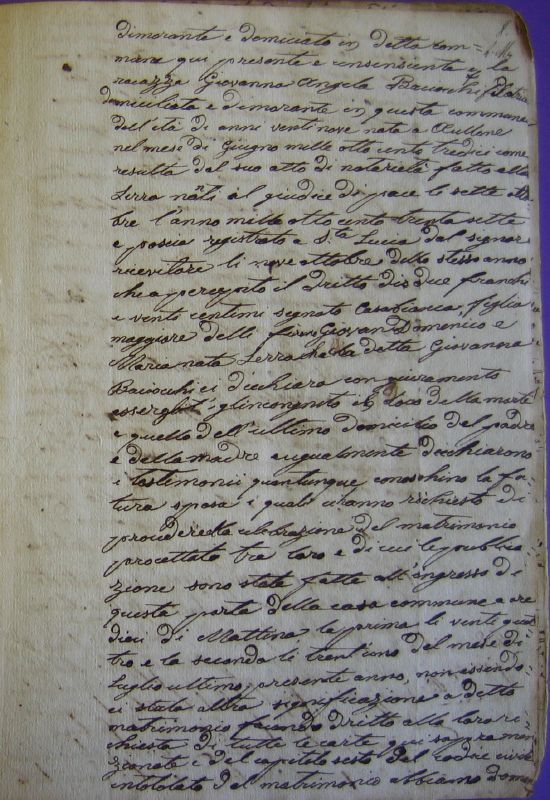 dimorante e domiciato in detta com=
mune qui presente e consensiente e la
ragazza Giovanna Angela Baciocchi filatrice
domiciliata e dimorante in questa commune
dell'età di anni venti nove nata a Aullene
nel mese di Giugno mille otto cento tredici come
resulta del suo atto di notarietà fatto alla
Serra nati al giudice di pace li sette otto
bre l'anno mille otto cento trenta sette
e poscia registrato a Sta Lucia dal signor
ricevitore li nove ottobre dello stesso anno
che a percepito il dretto di due franchi
e venti centimi segnato Casabianca, figlia
maggiore delli furono Giovan Domenico e
Maria nata Serra la detta Giovanna
Baciocchi ci dicchiara con giuramento
essergli incognito il loco della morte
e quello dell'ultimo domicilio del padre
e della madre eugualmente dicchiarono
i testimonii quantunque conoschino la fu
tura sposa i quali ci anno richiesto di
procidere alla celebrazione del matrimonio
procettato tra loro e di cui le publica
zione sono state fatte all'ingresso di
questa porta della casa commune a ore
dieci di Mattina la prima li venti quat
tro e la seconda li trent'uno del mese di
Luglio ultimo presente anno, non essendo
ci stata altra significazione a detto
matrimonio facendo dritto alla loro ri
chiesta di tutte le carte qui sopra men
zionate e del capitolo sesto del codice civile
intotolato del matrimonio abbiamo doman